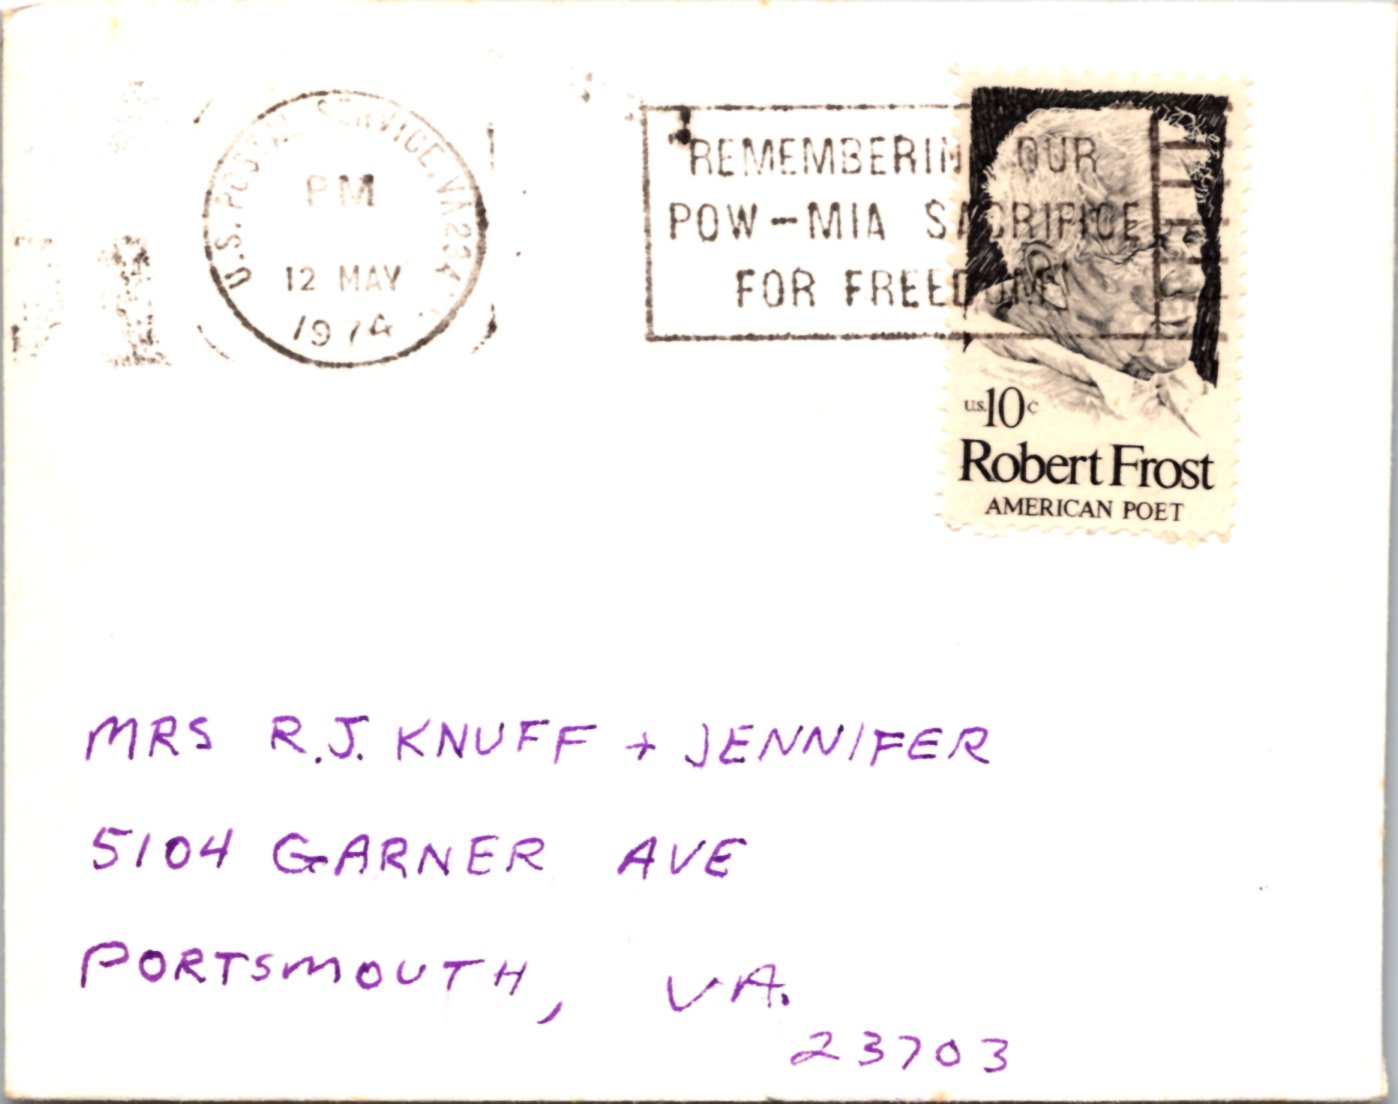 U.S. POSTAL SERVICE, VA 234
PM
12 MAY
1974
"REMEMBERING OUR
POW-MIA SACRIFICE
FOR FREEDOM"
U.S. 10c
Robert Frost
AMERICAN POET
MRS R.J. KNUFF + JENNIFER
5104 GARNER AVE
PORTSMOUTH, VA.
23703